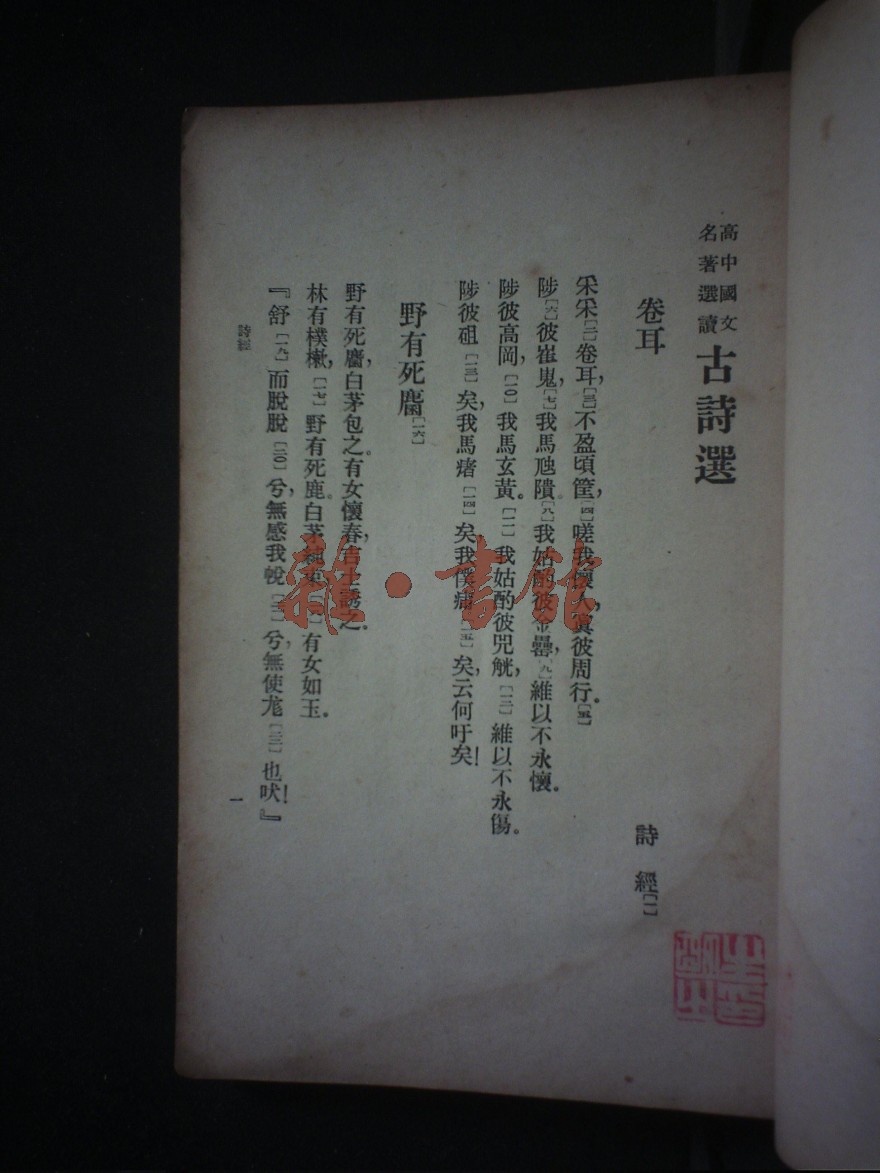 高中國文
名著選讀 古詩選
卷耳 詩經[一]
采采[二]卷耳,[三]不盈頃筐,[四]嗟我懷人,寘彼周行。[五]
陟[六]彼崔嵬,[七]我馬虺隤。[八]我姑酌彼金罍,[九]維以不永懷。
陟彼高岡,[一〇]我馬玄黃。[一一]我姑酌彼兕觥,[一二]維以不永傷。
陟彼砠[一三]矣,我馬瘏[一四]矣,我僕痡[一五]矣,云何吁矣!
野有死麕[一六]
野有死麕,白茅包之。有女懷春,吉士誘之。
林有樸樕,[一七]野有死鹿。白茅純束,[一八]有女如玉。
『舒[一九]而脫脫[二〇]兮,無感我帨[二一]兮,無使尨[二二]也吠!』
詩經
一
雜·書館